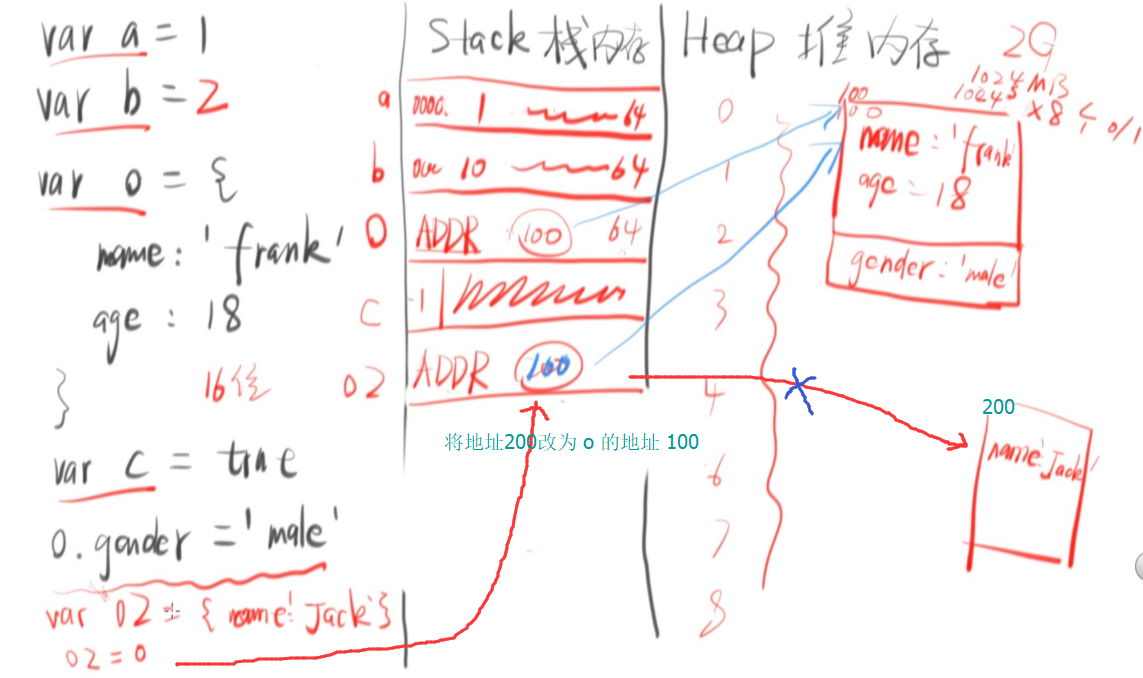 var a = 1
var b = 2
var o = {
name: 'frank'
age : 18
}
16位
var c = true
o.gender = 'male'
var o2 = { name: 'Jack'}
o2 = o
Stack 栈内存
a 0000. 1 64
b 10 64
o ADDR 100 64
c 1
o2 ADDR 100
将地址200改为 o 的地址 100
Heap 堆内存
2G
1024 MB
×8 个 0/1
0
1
2
3
4
6
7
8
100
100
name: 'frank'
age = 18
gender: 'male'
200
name'Jack'